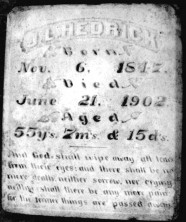 J.L. HEDRICK
Born
Nov. 6. 1847.
Died
June 21. 1902
Aged
55ys. 7ms. & 15ds.
And God shall wipe away all tears
from their eyes; and there shall be no
more death, neither sorrow, nor crying
neither shall there be any more pain:
for the former things are passed away.